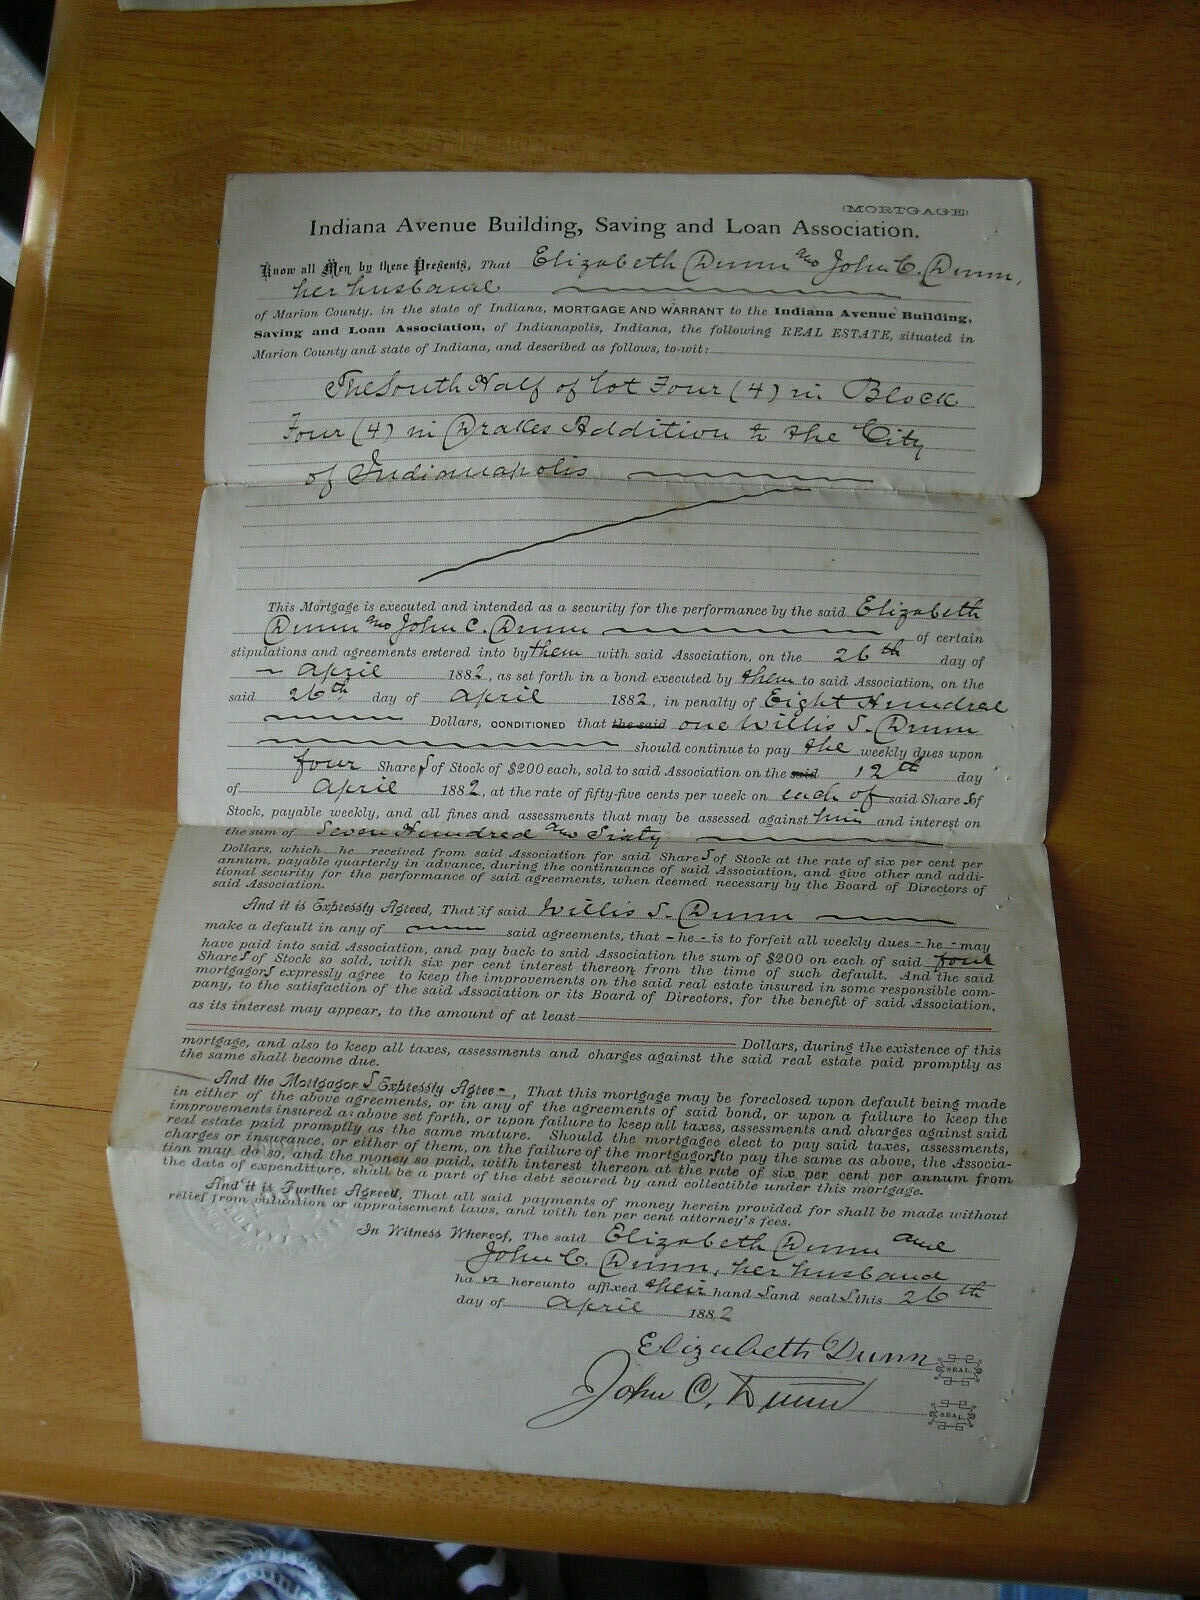 (MORTGAGE)
Indiana Avenue Building, Saving and Loan Association.
Know all Men by these Presents, That Elizabeth Dunn and John C. Dunn,
her husband
of Marion County, in the state of Indiana, MORTGAGE AND WARRANT to the Indiana Avenue Building,
Saving and Loan Association, of Indianapolis, Indiana, the following REAL ESTATE, situated in
Marion County and state of Indiana, and described as follows, to-wit:
The South Half of lot Four (4) in Block
Four (4) in Drakes Addition to the City
of Indianapolis
This Mortgage is executed and intended as a security for the performance by the said Elizabeth
Dunn and John C. Dunn of certain
stipulations and agreements entered into by them with said Association, on the 26th day of
April 1882, as set forth in a bond executed by them to said Association, on the
said 26th day of April 1882, in penalty of Eight Hundred
Dollars, CONDITIONED that the said one Willis S. Dunn
should continue to pay the weekly dues upon
four Shares of Stock of $200 each, sold to said Association on the said 12th day
of April 1882, at the rate of fifty-five cents per week on each of said Shares of
Stock, payable weekly, and all fines and assessments that may be assessed against him and interest on
the sum of Seven Hundred and Sixty
Dollars, which he received from said Association for said Shares of Stock at the rate of six per cent per
annum, payable quarterly in advance, during the continuance of said Association, and give other and addi-
tional security for the performance of said agreements, when deemed necessary by the Board of Directors of
said Association.
And it is Expressly Agreed, That if said Willis S. Dunn
make a default in any of said agreements, that - he - is to forfeit all weekly dues - he - may
have paid into said Association, and pay back to said Association the sum of $200 on each of said four
Shares of Stock so sold, with six per cent interest thereon from the time of such default. And the said
mortgagors expressly agree to keep the improvements on the said real estate insured in some responsible com-
pany, to the satisfaction of the said Association or its Board of Directors, for the benefit of said Association,
as its interest may appear, to the amount of at least
Dollars, during the existence of this
mortgage, and also to keep all taxes, assessments and charges against the said real estate paid promptly as
the same shall become due.
And the Mortgagors Expressly Agree -, That this mortgage may be foreclosed upon default being made
in either of the above agreements, or in any of the agreements of said bond, or upon a failure to keep the
improvements insured as above set forth, or upon failure to keep all taxes, assessments and charges against said
real estate paid promptly as the same mature. Should the mortgagee elect to pay said taxes, assessments,
charges or insurance, or either of them, on the failure of the mortgagors to pay the same as above, the Associa-
tion may do so, and the money so paid, with interest thereon at the rate of six per cent per annum from
the date of expenditure, shall be a part of the debt secured by and collectible under this mortgage.
And it is Further Agreed, That all said payments of money herein provided for shall be made without
relief from valuation or appraisement laws, and with ten per cent attorney's fees.
In Witness Whereof, The said Elizabeth Dunn and
John C. Dunn, her husband
have hereunto affixed their hands and seals this 26th
day of April 1882
Elizabeth Dunn SEAL.
John C. Dunn SEAL.